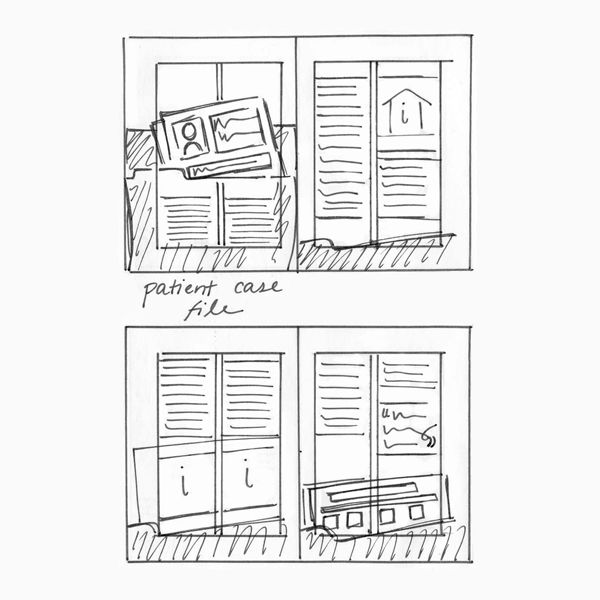 i
patient case
file
i i